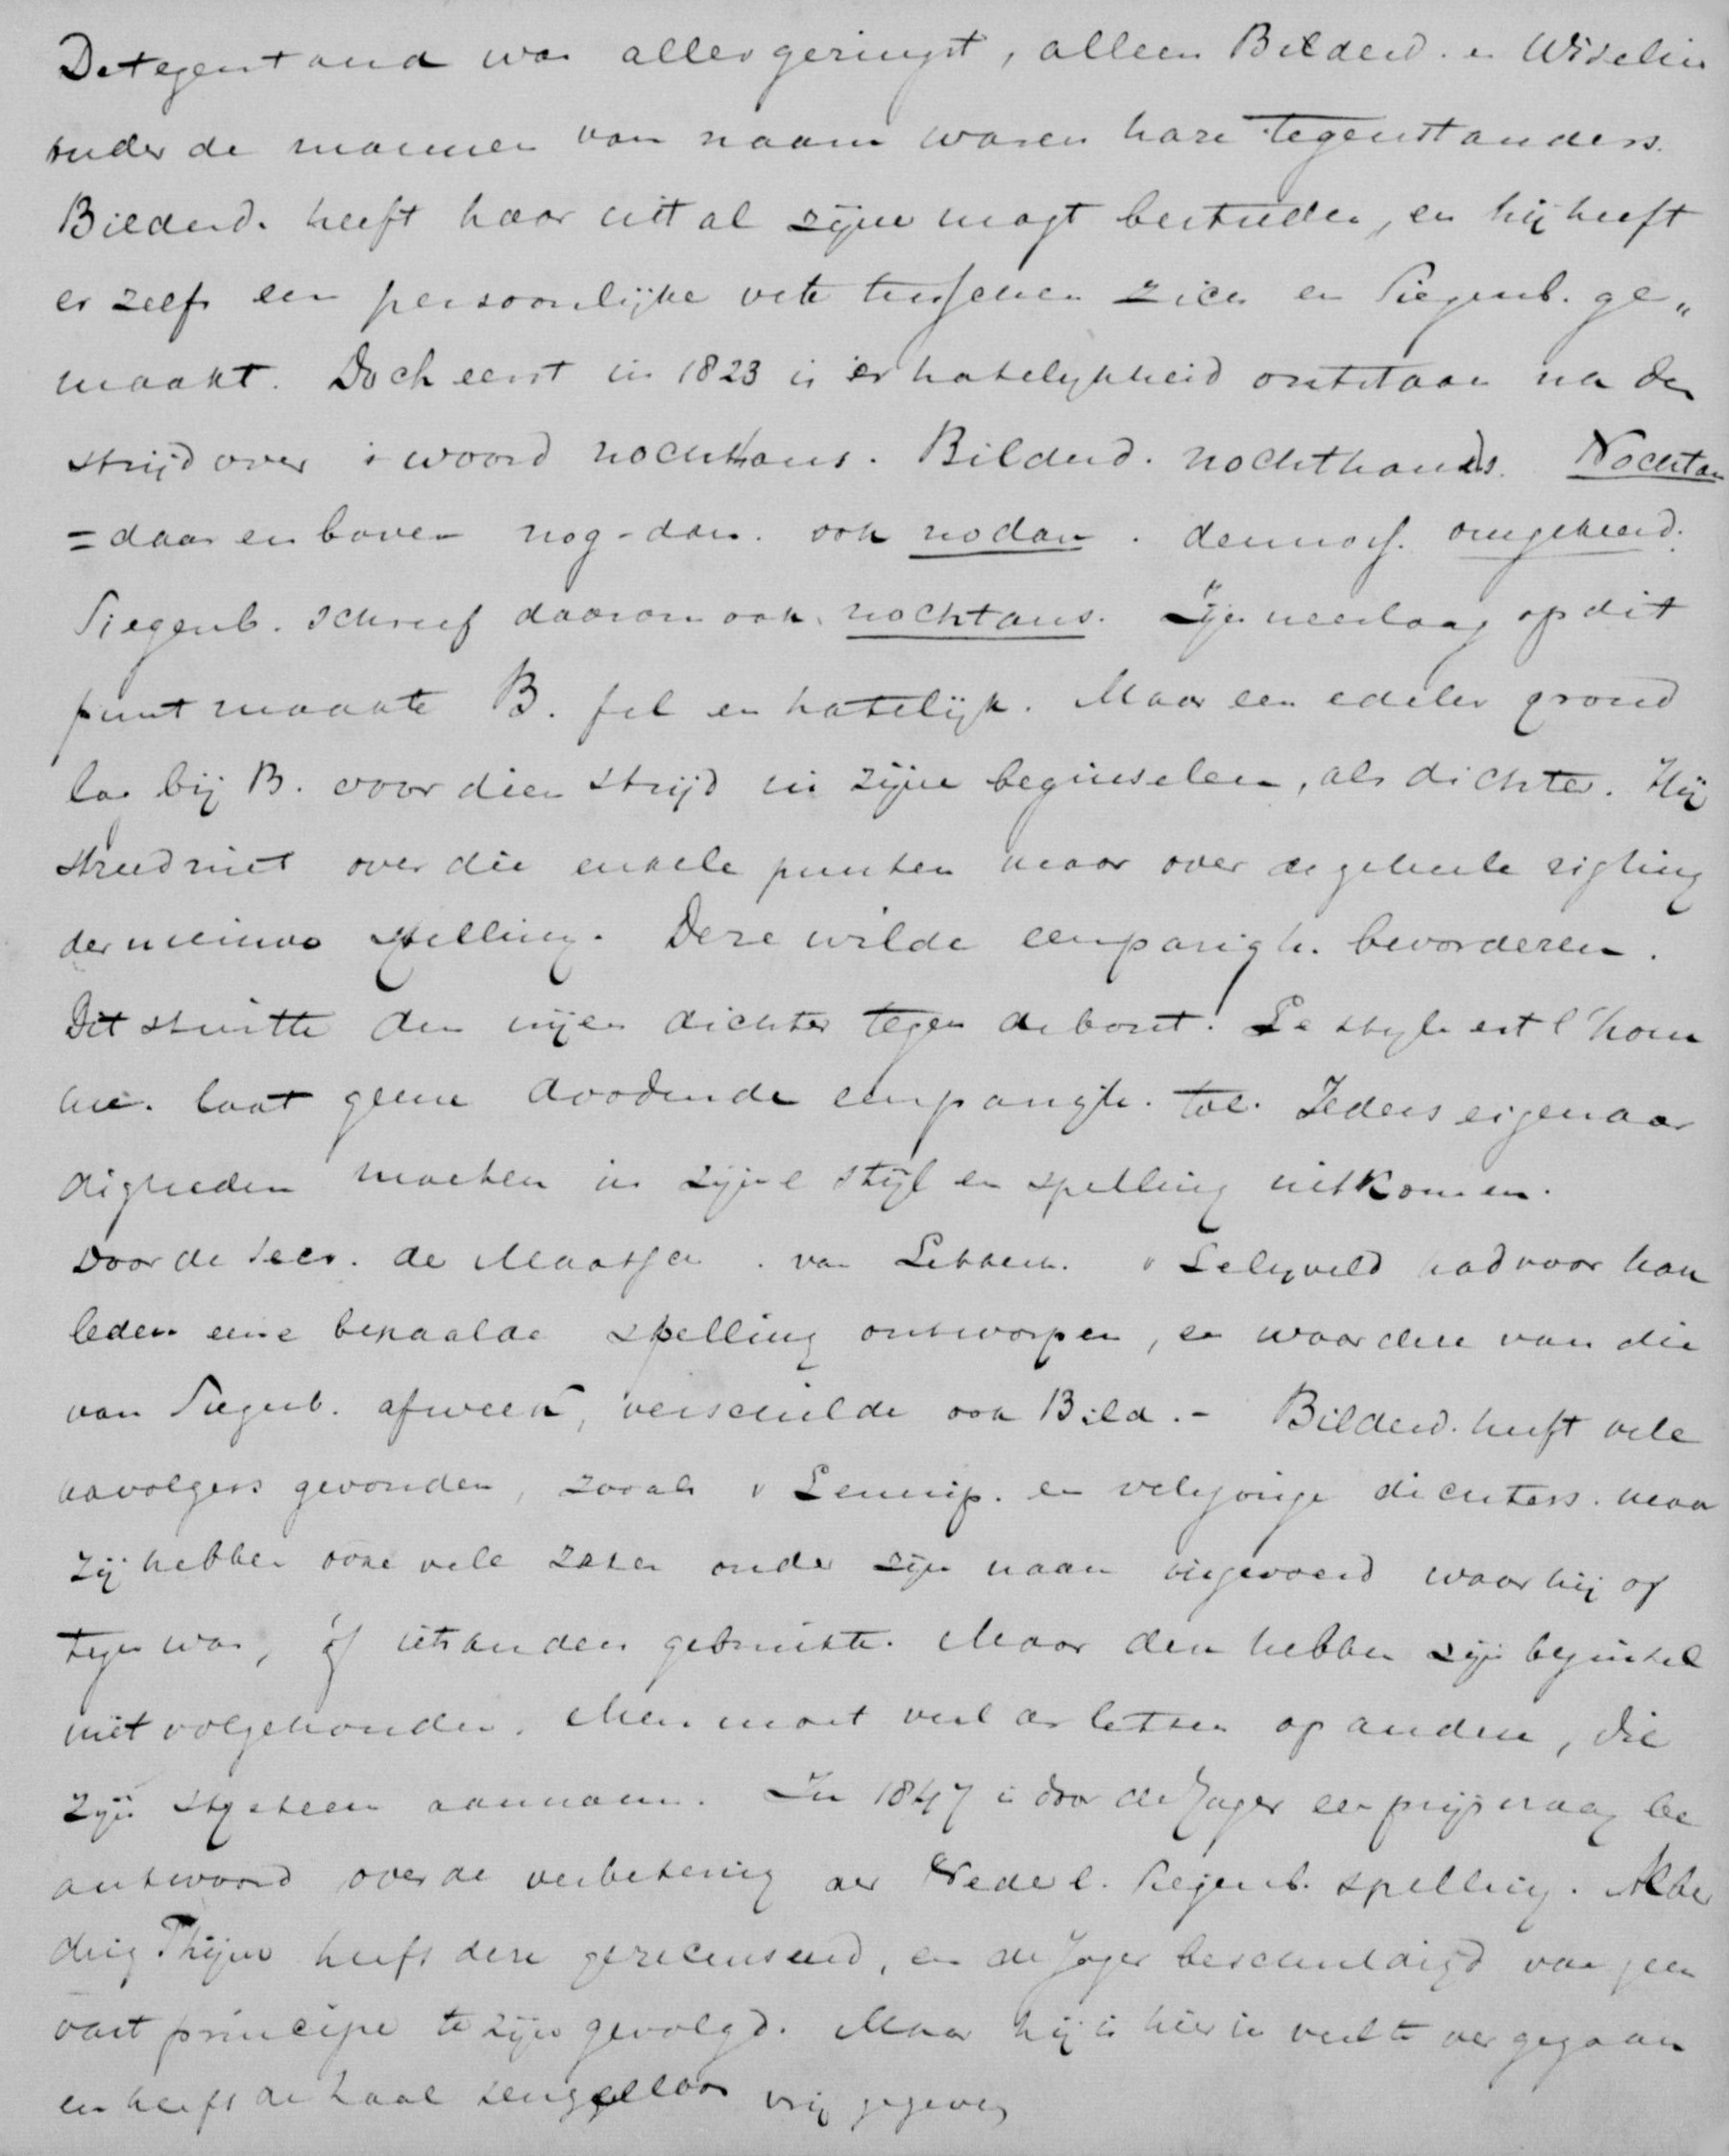 De tegenstand was allergeringst, alleen Bilderd. en Wiselius
onder de mannen van naam waren hare tegenstanders.
Bilderd. heeft haar uit al zijne magt bestreden, en hij heeft
er zelfs een persoonlijke vete tusschen zich en Siegenb. ge„
maakt. Doch eerst in 1823 is er hatelijkheid ontstaan na den
strijd over 't woord nochthans. Bilderd. nochthands. Nochtan
= daar en boven nog-dan. ook nodan. dennoch. omgekeerd.
Siegenb. schreef daarom ook nochtans. Zijn neerlaag op dit
punt maakte B. fel en hatelijk. Maar een edeler grond
lag bij B. voor dien strijd in zijne beginselen, als dichter. Hij
streed niet over die enkele punten maar over de geheele rigting
der nieuwe spelling. Deze wilde eenparigh. bevorderen.
Dit stuitte den vrijen dichter tegen de borst. Le style est l'hom
me. laat geene doodende eenparigh. toe. Ieders eigenaar
digheden moeten in zijne stijl en spelling uitkomen.
Voor de Secr. de Maatsch. van Letterk. v Lelyveld had voor haar
leden eene bepaalde spelling ontworpen, en waar deze van die
van Siegenb. afweek, verschilde ook Bild. - Bilderd. heeft vele
navolgers gevonden, zooals v Lennep. en vele jonge dichters. maar
zij hebben ook vele zaken onder zijn naam ingevoerd waar hij op
tegen was, of iets anders gebruikte. Maar den hebben zijn beginsel
niet volgehouden. Men moet veel de letten op andere, die
zijn systeem aannamen. In 1847 is door de Jager een prijsvraag be
antwoord over de verbetering der Nederl. Siegenb. spelling. Alber
ding Thijm heeft deze gerecenseerd, en de Jager beschuldigd van geen
vast principe te zijn gevolgd. Maar hij is hier in veel te ver gegaan
en heeft de taal teugelloos vrij gegeven